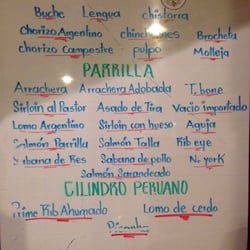 Buche Lengua chistorra
Chorizo Argentino chinchulines Brocheta
chorizo Campestre pulpo Molleja
PARRILLA
Arrachera Arrachera Adobada T. bone
Sirloin al Pastor Asado de Tira Vacio importado
Lomo Argentino Sirloin con hueso Aguja
Salmón Parrilla Salmón Talla Rib eye
urbana de Res Sabana de pollo N. york
Salmón Sarandeado
CILINDRO PERUANO
Prime Rib Ahumado Lomo de cerdo
Picanha